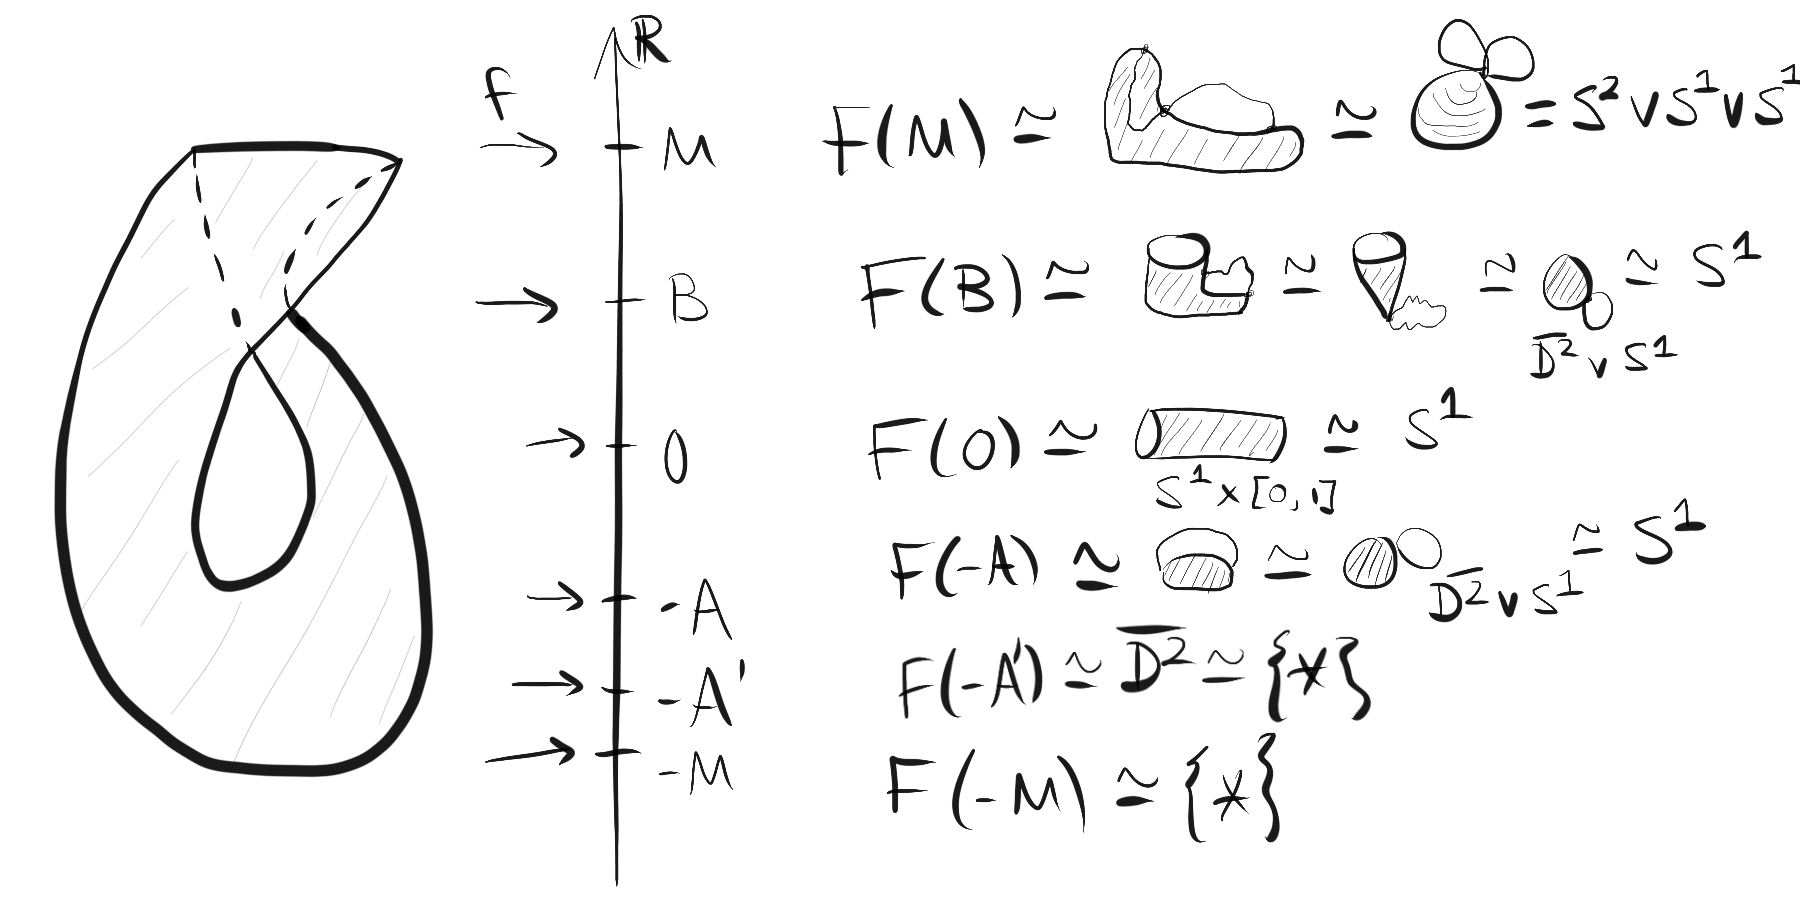 f
ℝ
M
B
0
-A
-A'
-M
F(M) ≃ ≃ = S² ∨ S¹ ∨ S¹
F(B) ≃ ≃ ≃ ≃ S¹
D̅² ∨ S¹
F(0) ≃ ≃ S¹
S¹ × [0, 1]
F(-A) ≃ ≃ ≃ S¹
D̅² ∨ S¹
F(-A') ≃ D̅² ≃ {*}
F(-M) ≃ {*}